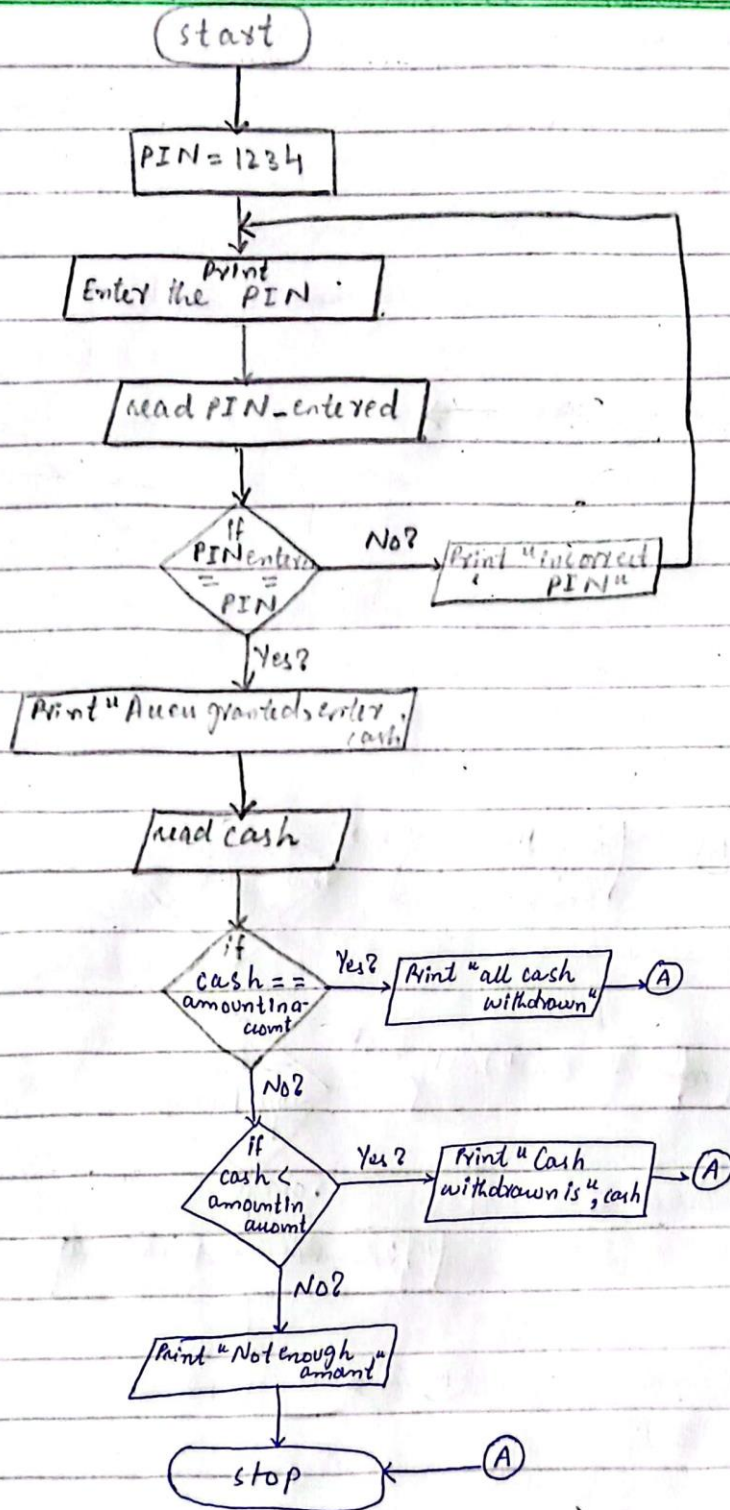 start
PIN = 1234
Print
Enter the PIN :
read PIN_entered
if
PIN entered
= =
PIN
No?
Print "incorrect
PIN"
Yes?
Print "Access granted, enter
cash
read cash
if
cash ==
amountina-
ccount
Yes?
Print "all cash
withdrawn"
A
No?
if
cash <
amountin
account
Yes?
Print "Cash
withdrawn is", cash
A
No?
Print "Not enough
amount"
stop
A